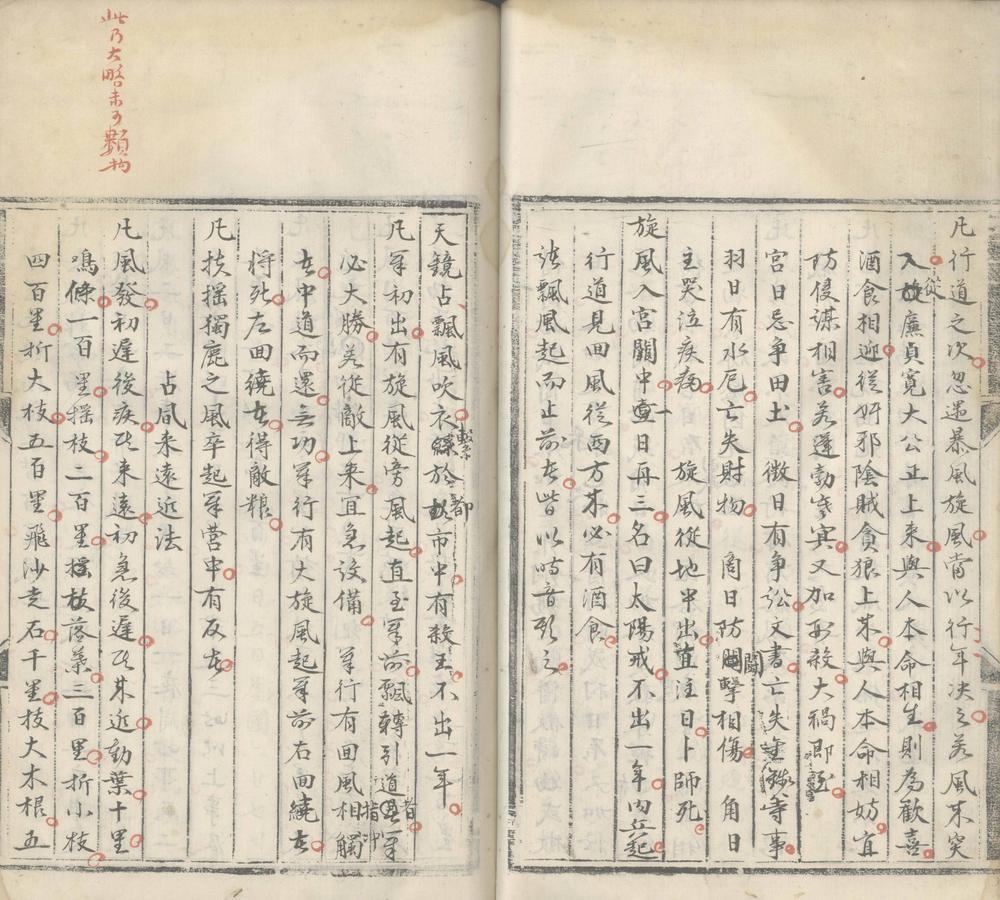 凡行道之次忽遇暴風旋風當以行年决之若風来突
入從廉貞寬大公正上来與人本命相生則為歡喜
酒食相迎從奸邪陰賊貪狼上来與人本命相妨宜
防侵謀相害若逢勃寅又加刑殺大禍即至
宮日忌争田土 徴日有争訟文書亡失金錢等事
羽日有水厄亡失財物 商日防鬪擊相傷 角日
主哭泣疾病 旋風從地中出直注日卜師死
旋風入宮闕中一日再三名曰太陽戒不出一年内兵起
行道見回風從西方来必有酒食
諸飄風起而止前去皆以時音斷之
此乃大略未可類拘
天鏡占飄風吹衣繫於都市中有殺主不出一年
凡軍初出有旋風從旁風起直至軍前飄轉引道者指中軍
必大勝若從敵上来宜急設備軍行有回風相觸
去中道而還無功軍行有大旋風起軍前右回繞去
将死左回繞去得敵粮
凡扶摇獨鹿之風卒起軍營中有反去
占風来遠近法
凡風發初遲後疾皆来遠初急後遲皆来近動葉十里
鳴條一百里摇枝二百里落葉三百里折小枝
四百里折大枝五百里飛沙走石千里枝大木根五